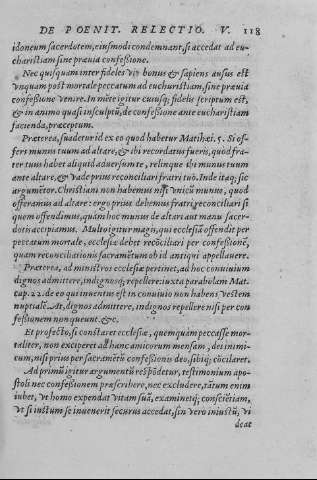 DE POENIT. RELECTIO. V. 118
idoneum sacerdotem, eiusmodi condemnant, si accedat ad eu-
charistiam sine præuia confeßione.
Nec quisquam inter fideles vir bonus & sapiens ausus est
vnquam post mortale peccatum ad euchuristiam, sine præuia
confeßione venire. In mẽte igitur cuiusq; fidelis scriptum est,
& in animo quasi insculptũ, de confeßione ante eucharistiam
facienda, præceptum.
Præterea, suadetur id ex eo quod habetur Matthæi. 5. Si of-
fers munus tuum ad altare, & ibi recordatus fueris, quod fra-
ter tuus habet aliquid aduersum te, relinque ibi munus tuum
ante altare, & vade prius reconciliari fratri tuo. Inde itaq; sic
argumẽtor. Christiani non habemus nisi vnicũ munus, quod
offeramus ad altare: ergo prius debemus fratri, reconciliari si
quem offendimus, quàm hoc munus de altari aut manu sacer-
dotis accipiamus. Multo igitur magis, qui ecclesiã offendit per
peccatum mortale, ecclesiæ debet recõciliari per confeßionẽ,
quam reconciliationis sacramẽtum ob id antiqui appellauere.
Præterea, ad ministros ecclesiæ pertinet, ad hoc conuiuium
dignos admittere, indignosq; repellere: iuxta parabolam Mat.
cap. 22. de eo qui inuentus est in conuiuio non habens vestem
nuptialẽ. At, dignos admittere, indignos repellere nisi per con
feßionem non queunt. &c.
Et profectò, si constaret ecclesiæ, quempiam peccasse mor-
taliter, non exciperet ad hanc amicorum mensam, dei inimi-
cum, nisi prius per sacramẽtũ confeßionis deo, sibiq; cõcilaret.
Ad primũ igitur argumentũ respõdetur, testimonium apo-
stoli nec confeßionem præscribere, nec excludere, tãtum enim
iubet, vt homo expendat vitam suã, examinetq; conscietiam,
vt si iustum se inuenerit securus accedat, sin vero iniustũ, vi
deat